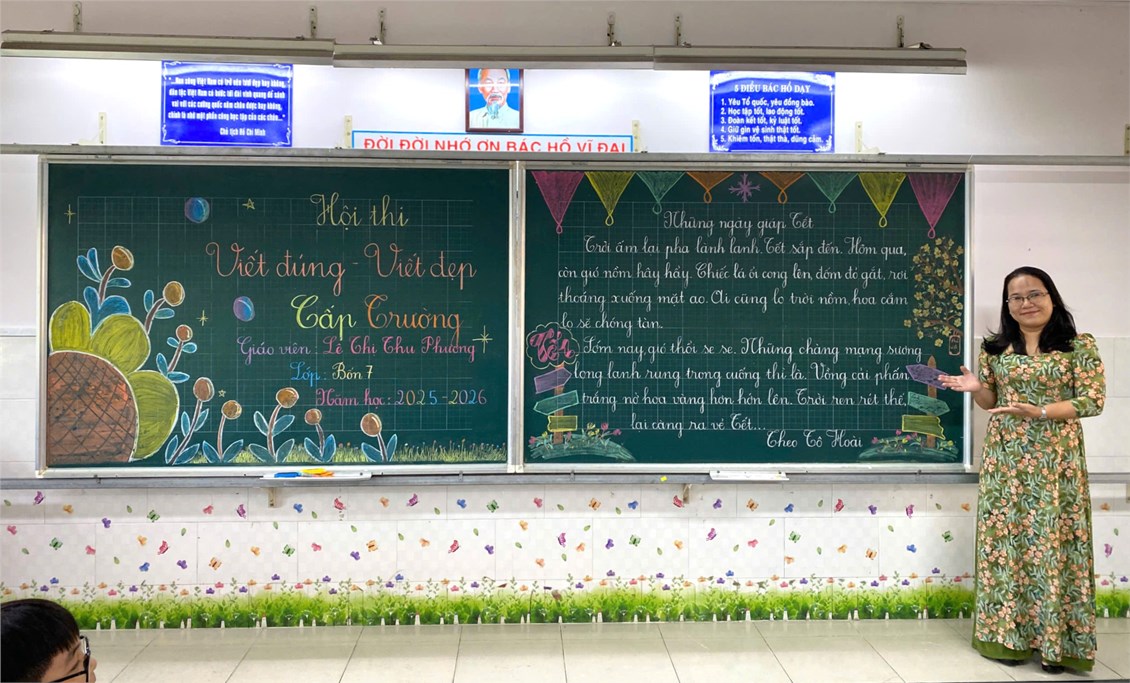 "Non sông Việt Nam có trở nên tươi đẹp hay không,
dân tộc Việt Nam có bước tới đài vinh quang để sánh
vai với các cường quốc năm châu được hay không,
chính là nhờ một phần công học tập của các cháu..."
Chủ tịch Hồ Chí Minh
ĐỜI ĐỜI NHỚ ƠN BÁC HỒ VĨ ĐẠI
5 ĐIỀU BÁC HỒ DẠY
1. Yêu Tổ quốc, yêu đồng bào.
2. Học tập tốt, lao động tốt.
3. Đoàn kết tốt, kỷ luật tốt.
4. Giữ gìn vệ sinh thật tốt.
5. Khiêm tốn, thật thà, dũng cảm.
Hội thi
Viết đúng - Viết đẹp
Cấp Trường
Giáo viên : Lê Thị Thu Phương
Lớp : Bốn 7
Năm học : 2025 - 2026
Những ngày giáp Tết
Trời ấm lại pha lành lạnh. Tết sắp đến. Hôm qua,
còn gió nồm hây hẩy. Chiếc lá ổi cong lên, đốm đỏ gắt, rơi
thoáng xuống mặt ao. Ai cũng lo trời nồm, hoa cắm
lọ sẽ chóng tàn.
Sớm nay, gió thổi se se. Những chàng mạng sương
long lanh rung trong cuống thì là. Vồng cải phấn
trắng nở hoa vàng hơn hớn lên. Trời ren rét thế,
lại càng ra vẻ Tết...
Theo Tô Hoài
Tết